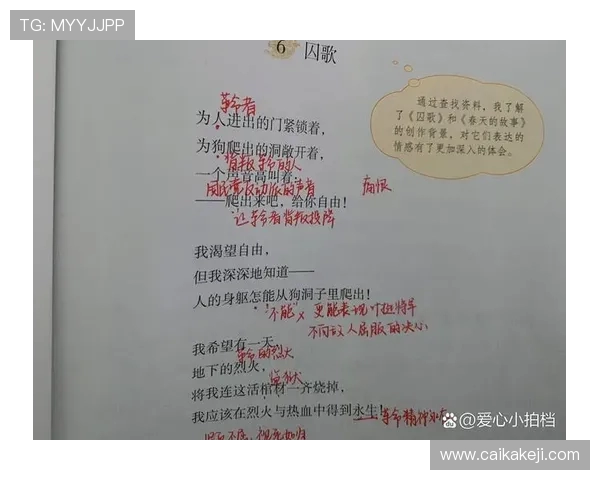 TG: MYYJJPP
6 囚歌
革命者
为人进出的门紧锁着，
为狗爬出的洞敞开着，
背叛革命的人
一个声音高叫着：
国民党反动派的声音
痛恨
——爬出来吧，给你自由！
让革命者背叛投降
通过查找资料，我了解
了《囚歌》和《春天的故事》
的创作背景，对它们表达的
情感有了更加深入的体会。
我渴望自由，
但我深深地知道——
人的身躯怎能从狗洞子里爬出！
"不能"× 更能表现叶挺将军
不向敌人屈服的决心
我希望有一天，
革命的烈火
地下的烈火，
监狱
将我连这活棺材一齐烧掉，
我应该在烈火与热血中得到永生！
革命精神永存
视死如归
爱心小拍档
www.caikakeji.com